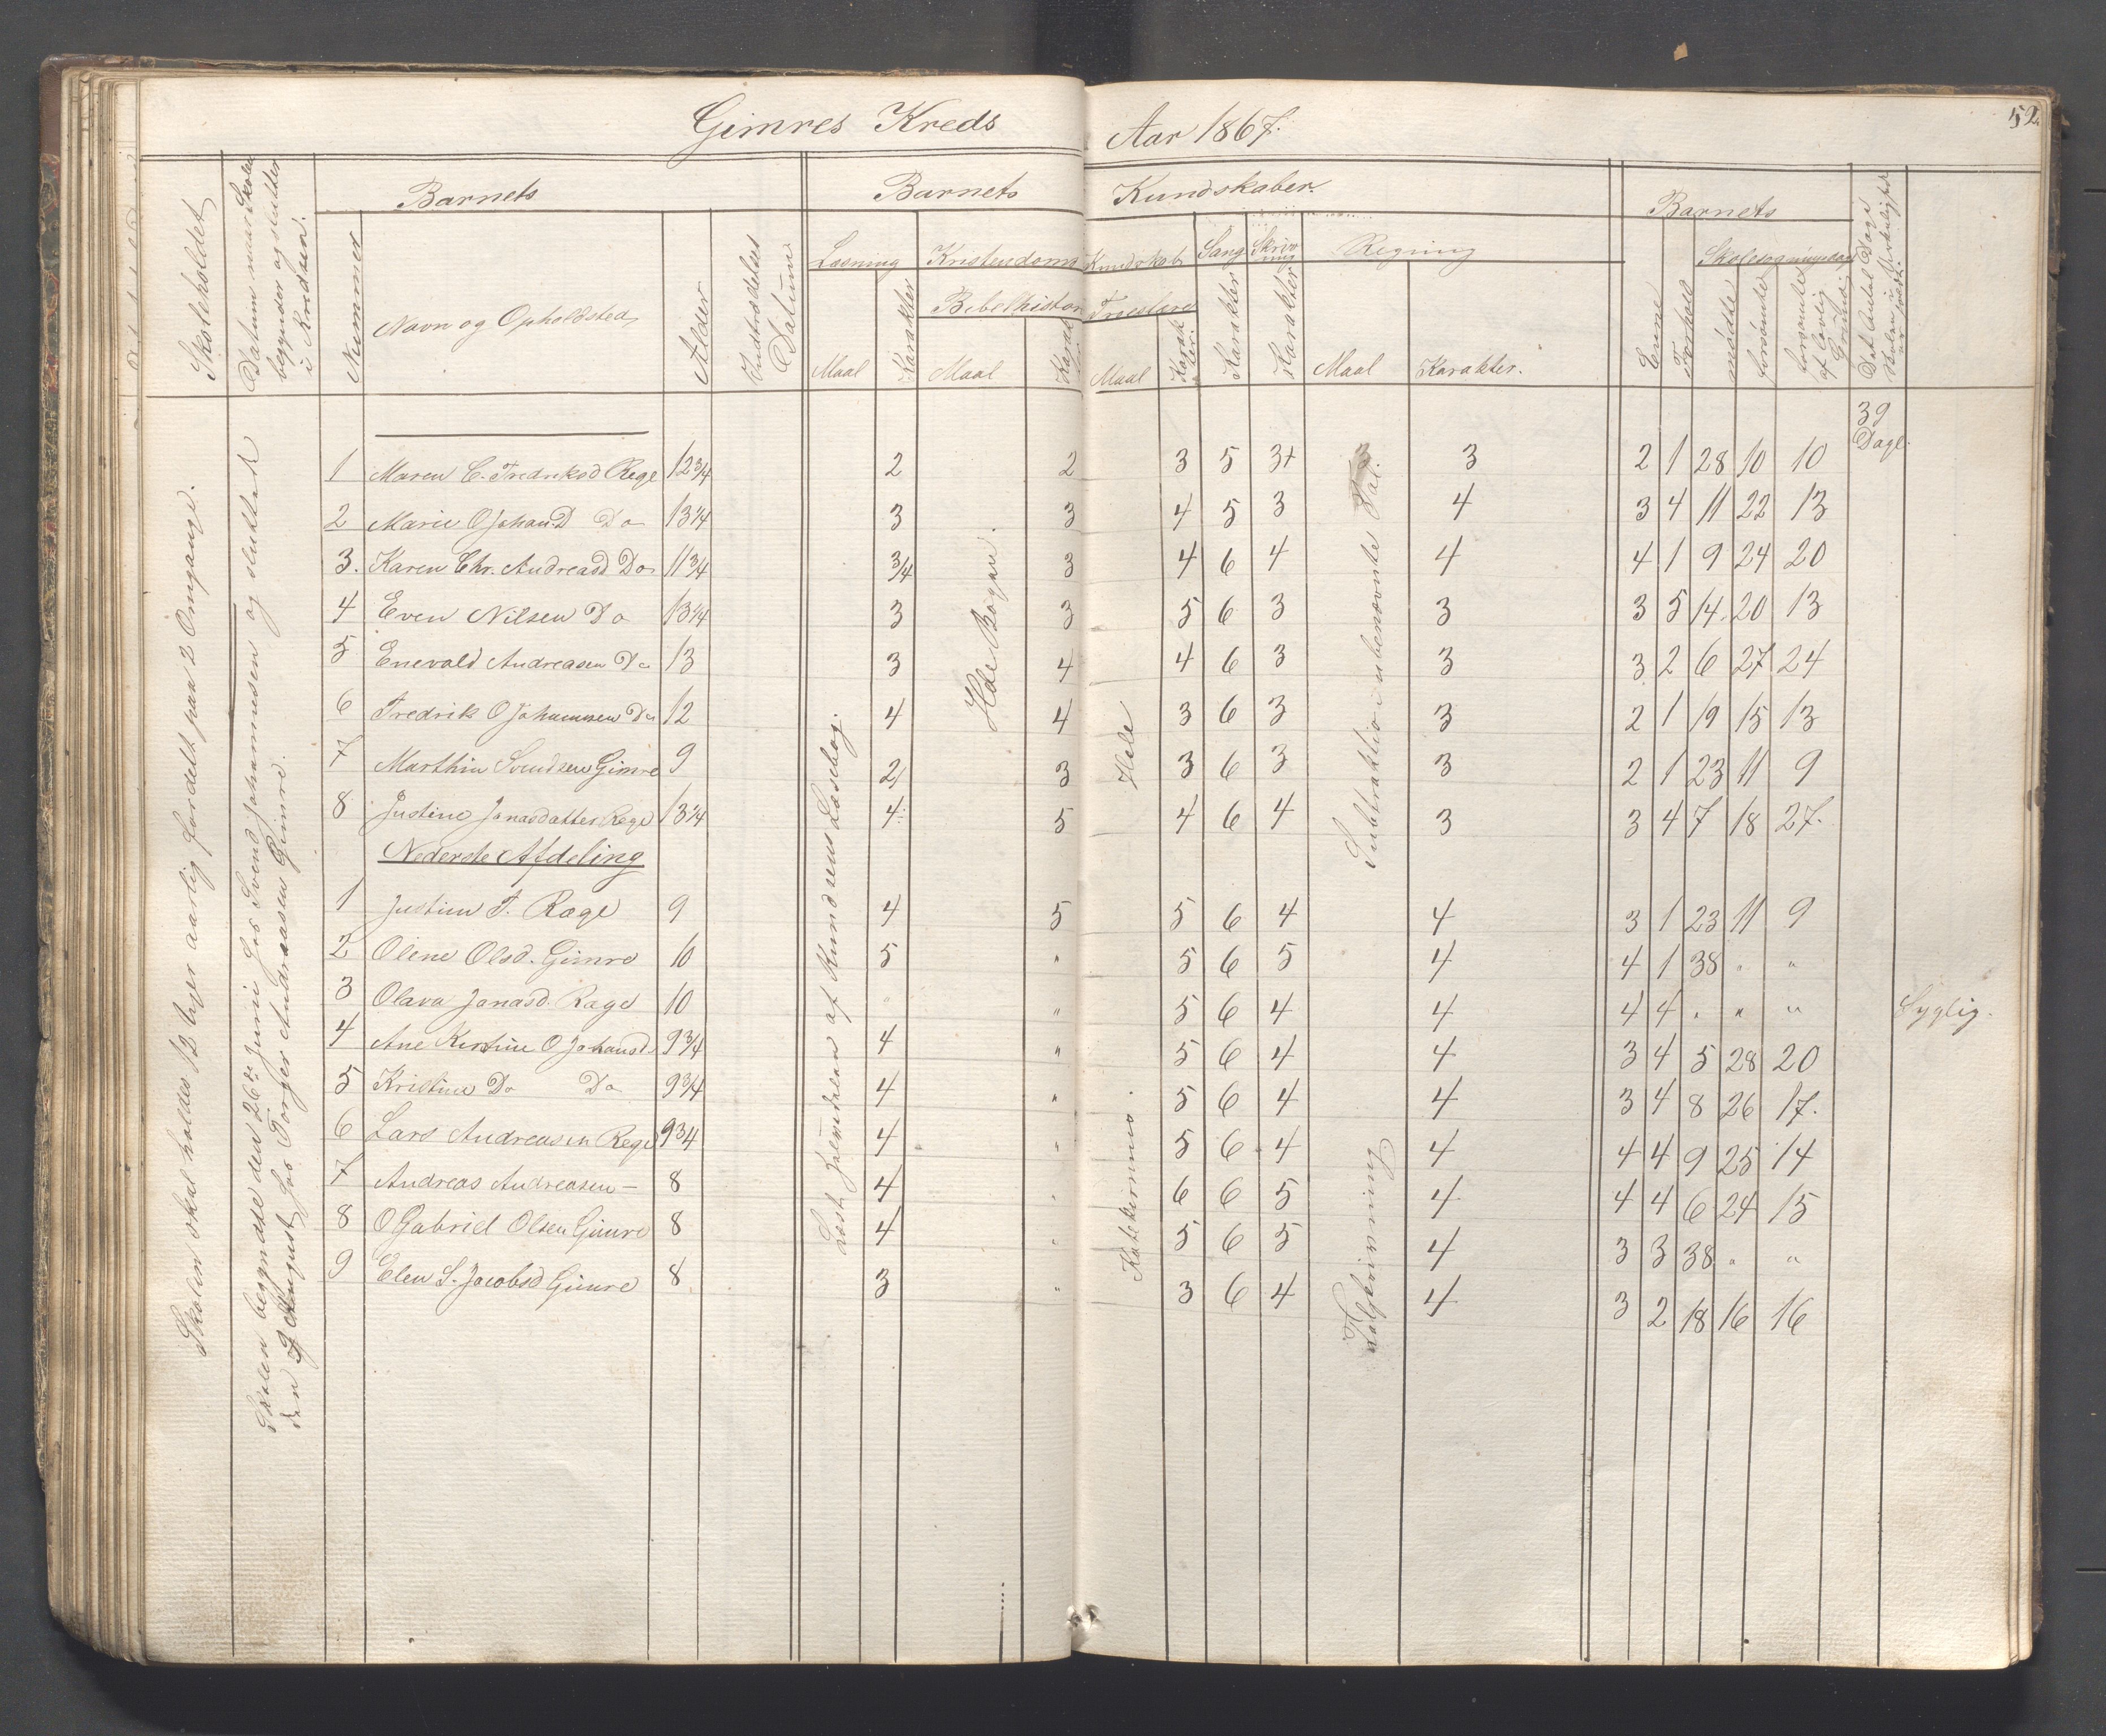 Gimres Kreds Aar 1867. 52.
Skoleholdet
Datum naar Skolen begynder og slutter i Kredsen.
Barnets
Nummer
Navn og Opholdsted
Alder
Indtrædelses Datum
Barnets Kundskaber.
Læsning
Maal
Karakter
Kristendoms Kundskab
Bibelhistorie
Maal
Karakter
Troeslære
Maal
Karakter
Sang
Karakter
Skrivning
Karakter
Regning
Maal
Karakter.
Barnets
Evne
Forhold
Skolesøgningsdage
mødte
forsømte
forsømte af lovlig Grund
Det Antal Dage Skolen i Virkelighed er
39 Dage.
Skolen skal holdes 12 Uger aarlig fordelt paa 2 Omgange.
Skolen begyndte den 26de Juni hos Svend Johannesen og sluttet
den 9 August hos Torger Andreassen Gimre.
Læst halvdelen af Knudsens Læsebog.
Hele Bogen.
Hele
Katekismus.
Subtraktio i ubenævnte Tal.
Talskrivning
1 Maren C. Fredriksd Rege 12 3/4 2 2 3 5 3+ 3 3 2 1 28 10 10
2 Marie O JohanD Do 13 1/4 3 3 4 5 3 4 3 4 11 22 13
3. Karen Chr. Andreasd Do 11 3/4 3/4 3 4 6 4 4 4 1 9 24 20
4 Even Nilsen Do 13 1/4 3 3 5 6 3 3 3 5 14 20 13
5 Enevald Andreasen Do 13 3 4 4 6 3 3 3 2 6 27 24
6 Fredrik O Johannsen Do 12 4 4 3 6 3 3 2 1 19 15 13
7 Marthin Svendsen Gimre 9 2 3 3 6 3 3 2 1 23 11 9
8 Justine Jonasdatter Rege 13 1/4 4 5 4 6 4 3 3 4 7 18 27.
Nederste Afdeling
1 Justine T. Rege 9 4 5 5 6 4 4 3 1 23 11 9
2 Olene Olsd. Gimre 10 5 " 5 6 5 4 4 1 38 " "
3 Olava Jonasd. Rege 10 " " 5 6 4 4 4 4 " " " Syglig.
4 Ane Kirstine O Johansd. 9 3/4 4 " 5 6 4 4 3 4 5 28 20
5 Kristine Do Do 9 3/4 4 " 5 6 4 4 3 4 8 26 17.
6 Lars Andreasen Rege 9 3/4 4 " 5 6 4 4 4 4 9 25 14
7 Andreas Andreasen – 8 4 " 6 6 5 4 4 4 6 24 15
8 O Gabriel Olsen Gimre 8 4 " 5 6 5 4 3 3 38 " "
9 Elen S. Jacobsd Gimre 8 3 " 3 6 4 4 3 2 18 16 16